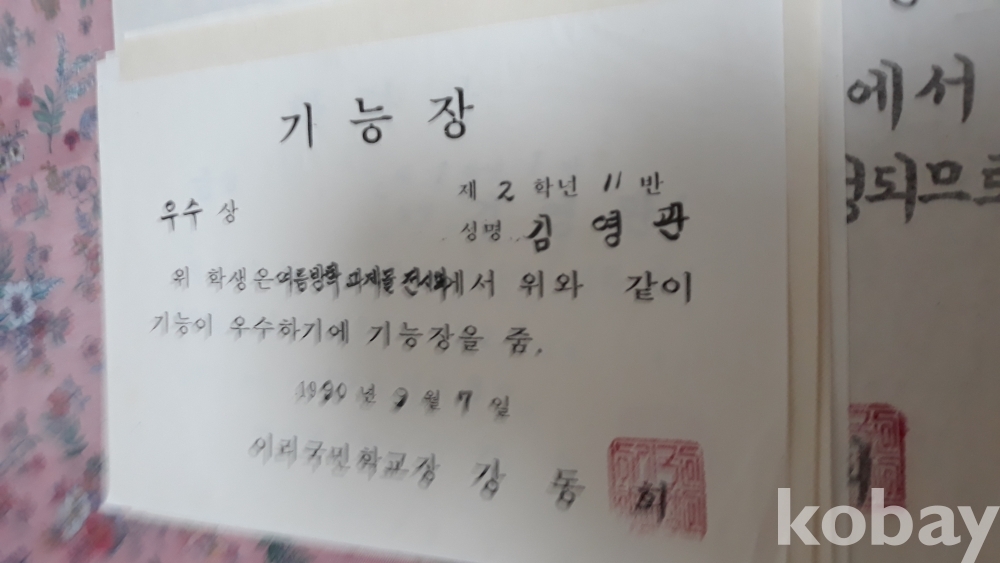 기능장
제 2 학년 11 반
우수상
성명 김영관
위 학생은 여름방학 과제물 전시회에서 위와 같이
기능이 우수하기에 기능장을 줌.
년 9월 7일
이리국민학교장 강동희
에서
되므로
kobay